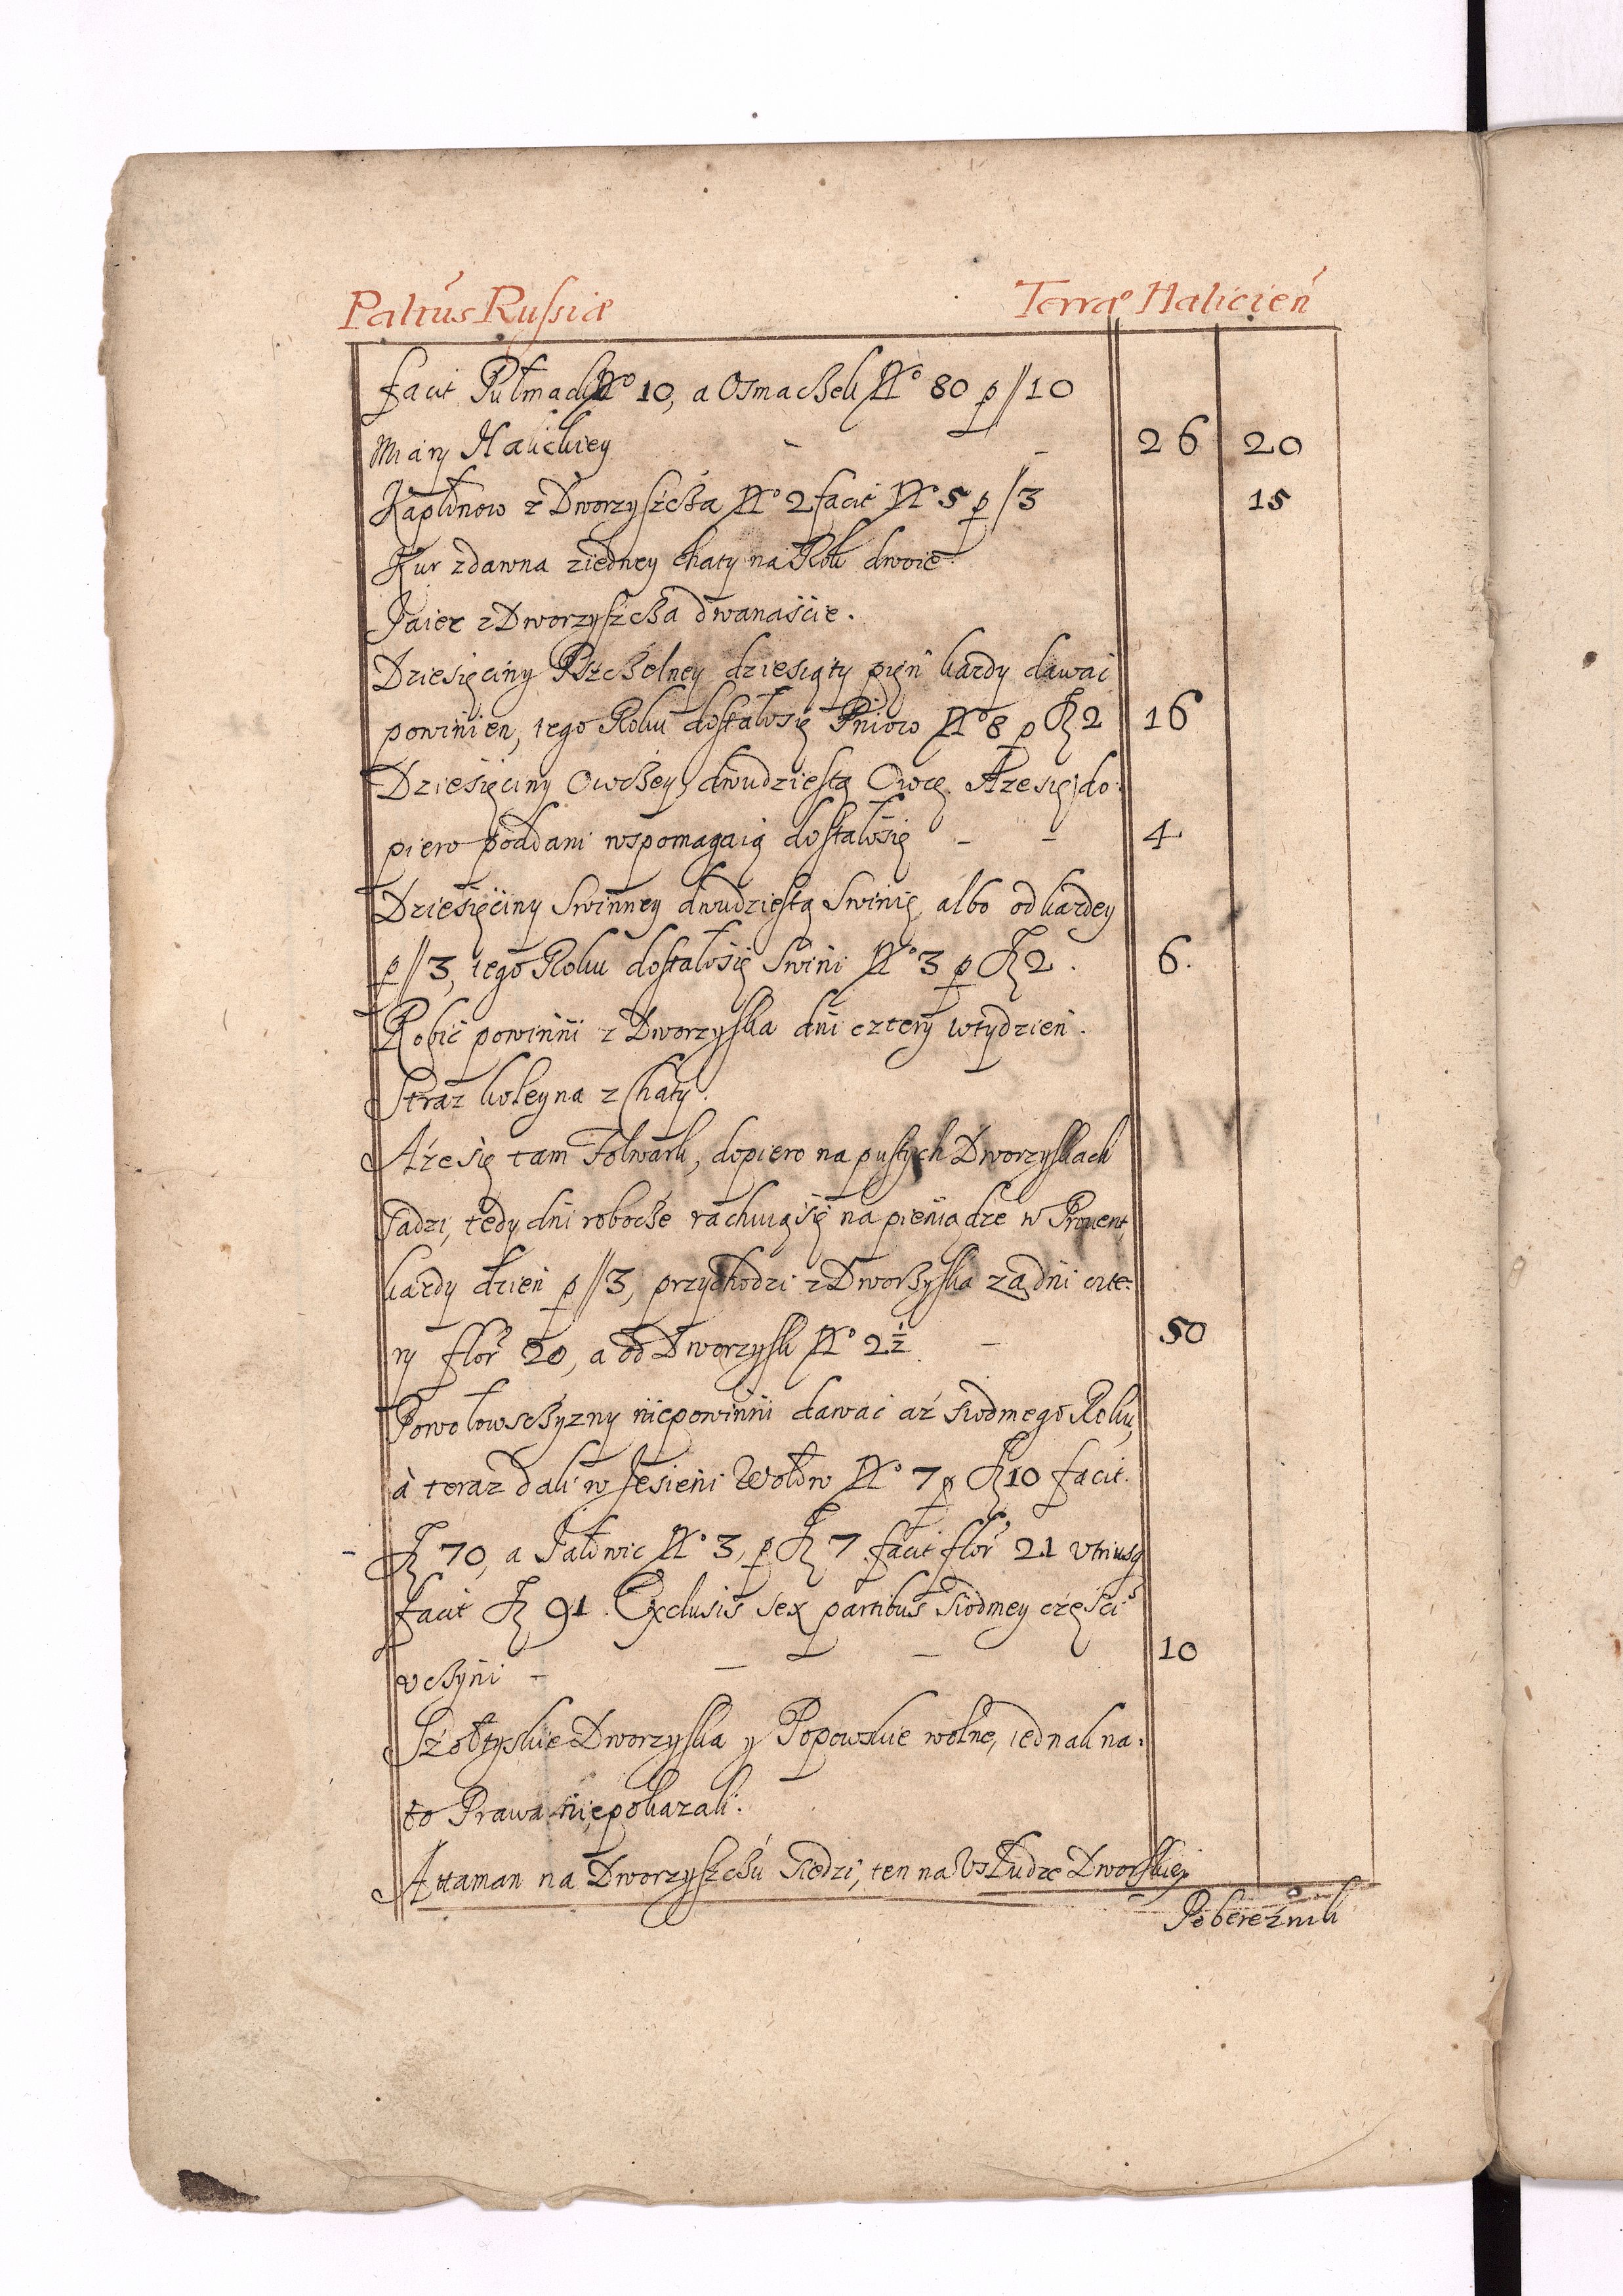 Paltus Russiæ Terræ Halicień
facit Pułmackw No 10, a Osmaczek No 80 p // 10
Miary Halickiey - - 26 20
Kapłonow z Dworzyszcza No 2 facit No 5 p / 3 15
Kur zdawna ziedney chaty na Rok dwoie
Jaiec z Dworzyszcza dwanaście.
Dziesięciny Pszczelney dziesiąty pień kazdy dawać
powinien, tego Roku dostałosię Pniow No 8 p fl 2 16
Dziesięciny Owczey dwudziestą Owcę. Aze się do:
piero poddani wspomagaią dostałosię - - 4
Dziesięciny Swinney dwudziestą Swinię, albo od kazdey
p // 3, tego Roku dostałosię Swini No 3 p fl 2. 6.
Robić powinni z Dworzyska dni cztery wtydzień.
Straz koleyna z Chaty.
Aże się tam Folwark, dopiero na pustych Dworzyskach
sadzi, tedy dni robocze rachuią się na pieniądze w Prouent,
kazdy dzień p // 3, przychodzi z Dworzyska za dni czte:
ry flor 20, a od Dworzysk No 2 1/2 - 50
Powołowszczyzny niepowinni dawać aż siodmego Roku,
à teraz dali w Jesieni Wołow No 7 p fl 10 facit.
fl 70, a Jałowic No 3, p fl 7 facit flor 21 vtriusq
facit fl 91. Exclusis sex partibus siodmey częsci
vczyni - - - 10
Szołtyskie Dworzyska y Popowskie wolne, iednak na
to Prawa niepokazali.
Attaman na Dworzyszczu siedzi, ten na Vsłudze Dworskiey
Pobereżnik